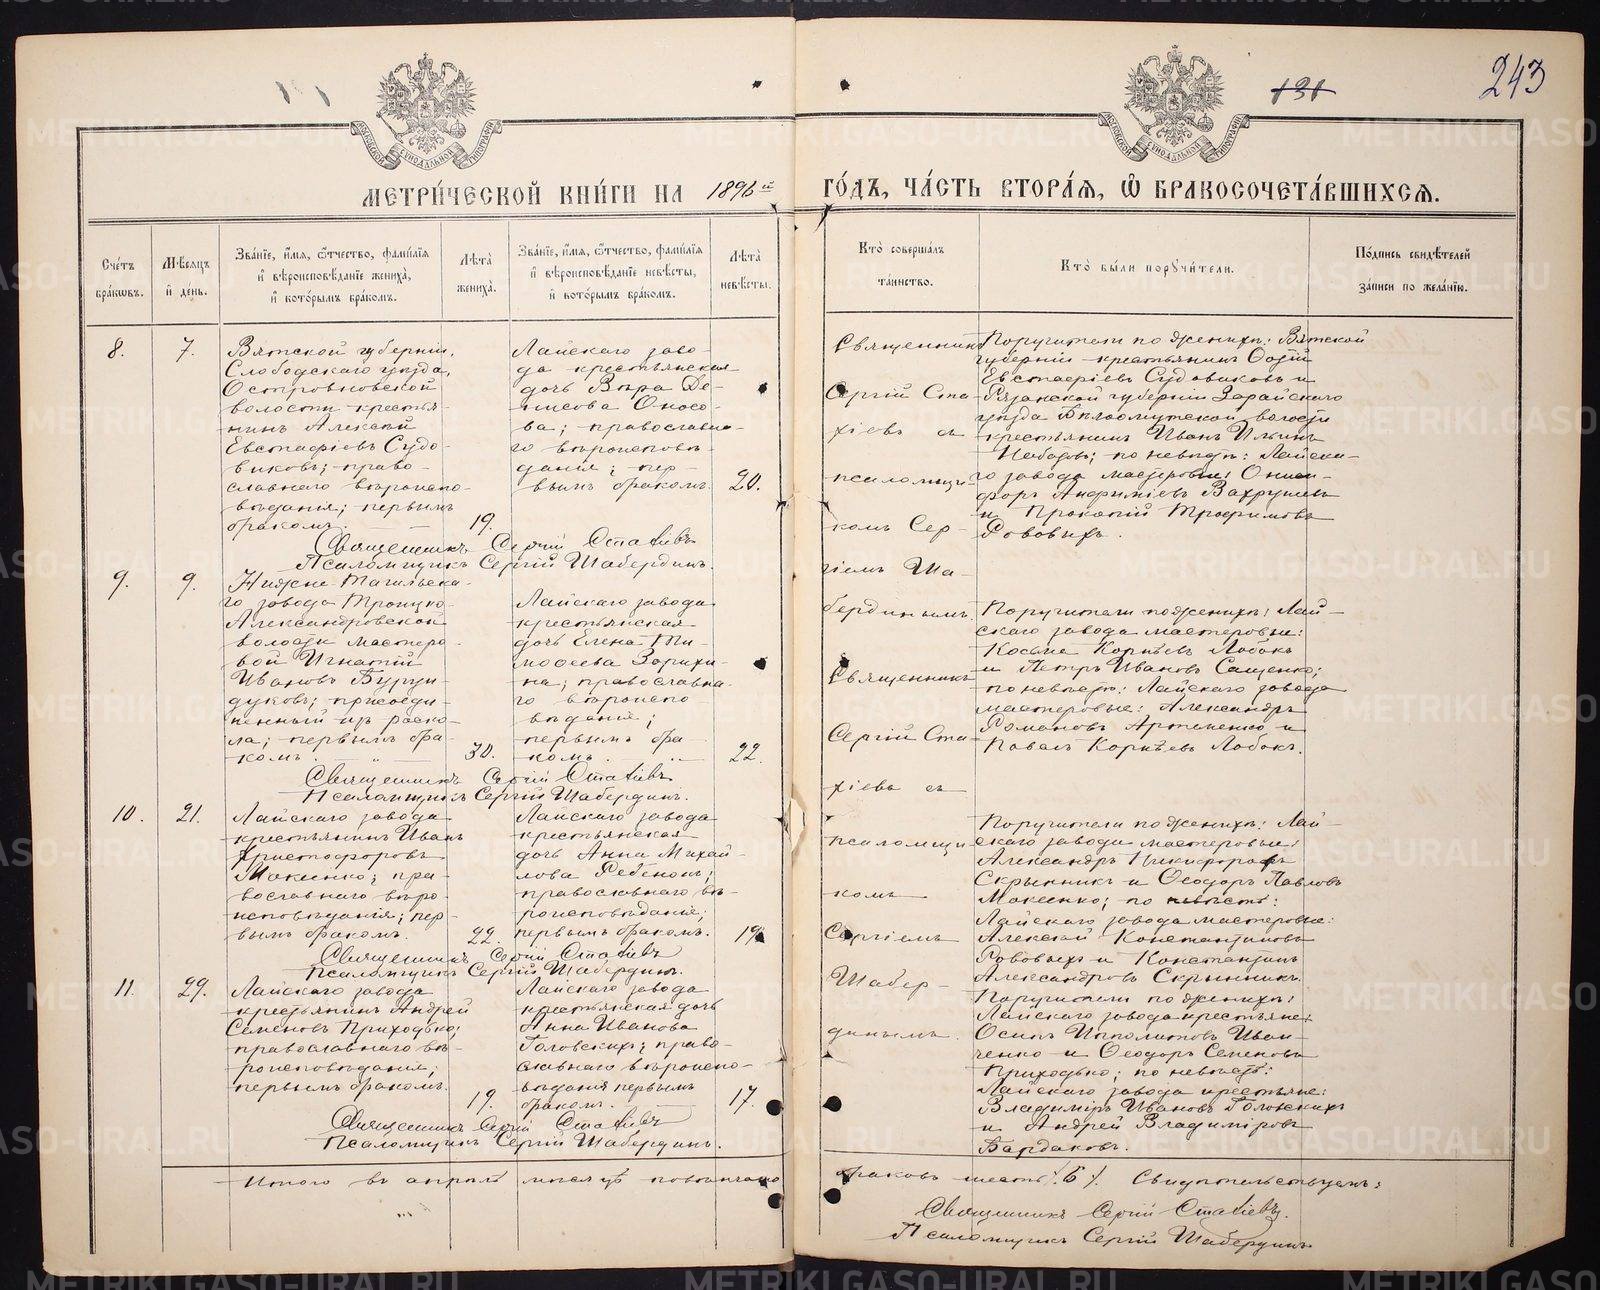 131
243
МОСКОВСКОЙ СѴНОДАЛЬНОЙ ТИПОГРАФІИ
МОСКОВСКОЙ СѴНОДАЛЬНОЙ ТИПОГРАФІИ
МЕТРИ́ЧЕСКОЙ КНИ́ГИ НА 1896й ГО́ДЪ, ЧА́СТЬ ВТОРА́Я, Ѿ БРАКОСОЧЕТА́ВШИХСЯ.
Сче́тъ бра́кѡвъ.
Мѣ́сяцъ и҆ де́нь.
Зва́нїе, и҆́мѧ, ѻ҆́тчество, фами́лїѧ и҆ вѣроисповѣ́данїе жениха̀, и҆ кото́рымъ бра́комъ.
Лѣта̀ жениха̀.
Зва́нїе, и҆́мѧ, ѻ҆́тчество, фами́лїѧ и҆ вѣроисповѣ́данїе невѣ́сты, и҆ кото́рымъ бра́комъ.
Лѣта̀ невѣ́сты.
Кто̀ соверша́лъ та́инство.
Кто̀ бы́ли порꙋчи́тели.
По́дпись свидѣ́телей за́писи по жела́нїю.
8.
7.
Вятской губерніи,
Слободскаго уѣзда,
Островновской
волости крестья-
нинъ Алексѣй
Евстафіевъ Судо-
виковъ; право-
славнаго вѣроиспо-
вѣданія; первымъ
бракомъ.
19.
Лайскаго заво-
да крестьянская
дочь Вѣра Де-
нисова Оносо-
ва; православна-
го вѣроисповѣ-
данія; пер-
вымъ бракомъ.
20.
Священникъ
Сергій Ста-
хіевъ съ
псаломщи-
комъ Сер-
гіемъ Ша-
бердинымъ.
Поручители по женихѣ: Вятской
губерніи крестьянинъ
Евстафіевъ Судовиковъ и
Рязанской губерніи Зарайскаго
уѣзда Бѣлоомутской волости
крестьянинъ Иванъ Ильинъ
по невѣстѣ: Лайска-
го завода мастеровые: Ониси-
форъ Вахрушевъ
и Прокопій Трофимовъ
Рововыхъ.
Священникъ Сергій Стахіевъ
Псаломщикъ Сергій Шабердинъ.
9.
9.
Нижне-Тагильска-
го завода Троицко-
Александровской
волости мастеро-
вой Игнатій
Ивановъ Бурун-
дуковъ; присоеди-
ненный изъ раско-
ла; первымъ бра-
комъ.
30.
Лайскаго завода
крестьянская
дочь Елена Ти-
моѳеева Зорихи-
на; православна-
го вѣроиспо-
вѣданія;
первымъ бра-
комъ.
22.
Священникъ
Сергій Ста-
хіевъ съ
псаломщи-
комъ
Сергіемъ
Шабер-
динымъ.
Поручители по женихѣ: Лай-
скаго завода мастеровые:
Косьма Корнѣевъ Лобокъ
и Петръ Ивановъ Сащенко;
по невѣстѣ: Лайскаго завода
мастеровые: Александръ
Романовъ Артеменко и
Павелъ Корнѣевъ Лобокъ.
Священникъ Сергій Стахіевъ
Псаломщикъ Сергій Шабердинъ.
10.
21.
Лайскаго завода
крестьянинъ Иванъ
Христофоровъ
Мокеенко; пра-
вославнаго вѣро-
исповѣданія; пер-
вымъ бракомъ.
22.
Лайскаго завода
крестьянская
дочь Анна Михай-
лова Ребенокъ;
православнаго вѣ-
роисповѣданія;
первымъ бракомъ.
19.
Поручители по женихѣ: Лай-
скаго завода мастеровые:
Александръ Никифоровъ
Скрынникъ и Ѳеодоръ Павловъ
Мокеенко; по невѣстѣ:
Лайскаго завода мастеровые:
Алексѣй Константиновъ
Рововыхъ и Константинъ
Александровъ Скрынникъ.
Священникъ Сергій Стахіевъ
Псаломщикъ Сергій Шабердинъ.
11.
29.
Лайскаго завода
крестьянинъ Андрей
Семеновъ Приходько;
православнаго вѣ-
роисповѣданія;
первымъ бракомъ.
19.
Лайскаго завода
крестьянская дочь
Анна Иванова
Головскихъ; право-
славнаго вѣроиспо-
вѣданія первымъ
бракомъ.
17.
Поручители по женихѣ:
Лайскаго завода крестьяне:
Осипъ Ипполитовъ Иван-
ченко и Ѳеодоръ Семеновъ
Приходько; по невѣстѣ:
Лайскаго завода крестьяне:
Владиміръ Ивановъ Головскихъ
и Андрей Владиміровъ
Бардаковъ.
Священникъ Сергій Стахіевъ
Псаломщикъ Сергій Шабердинъ.
Итого въ апрѣлѣ мѣсяцѣ повѣнчано браковъ шесть /.6/. Свидѣтельствуемъ:
Священникъ Сергій Стахіевъ.
Псаломщикъ Сергій Шабердинъ
METRIKI.GASO-URAL.RU